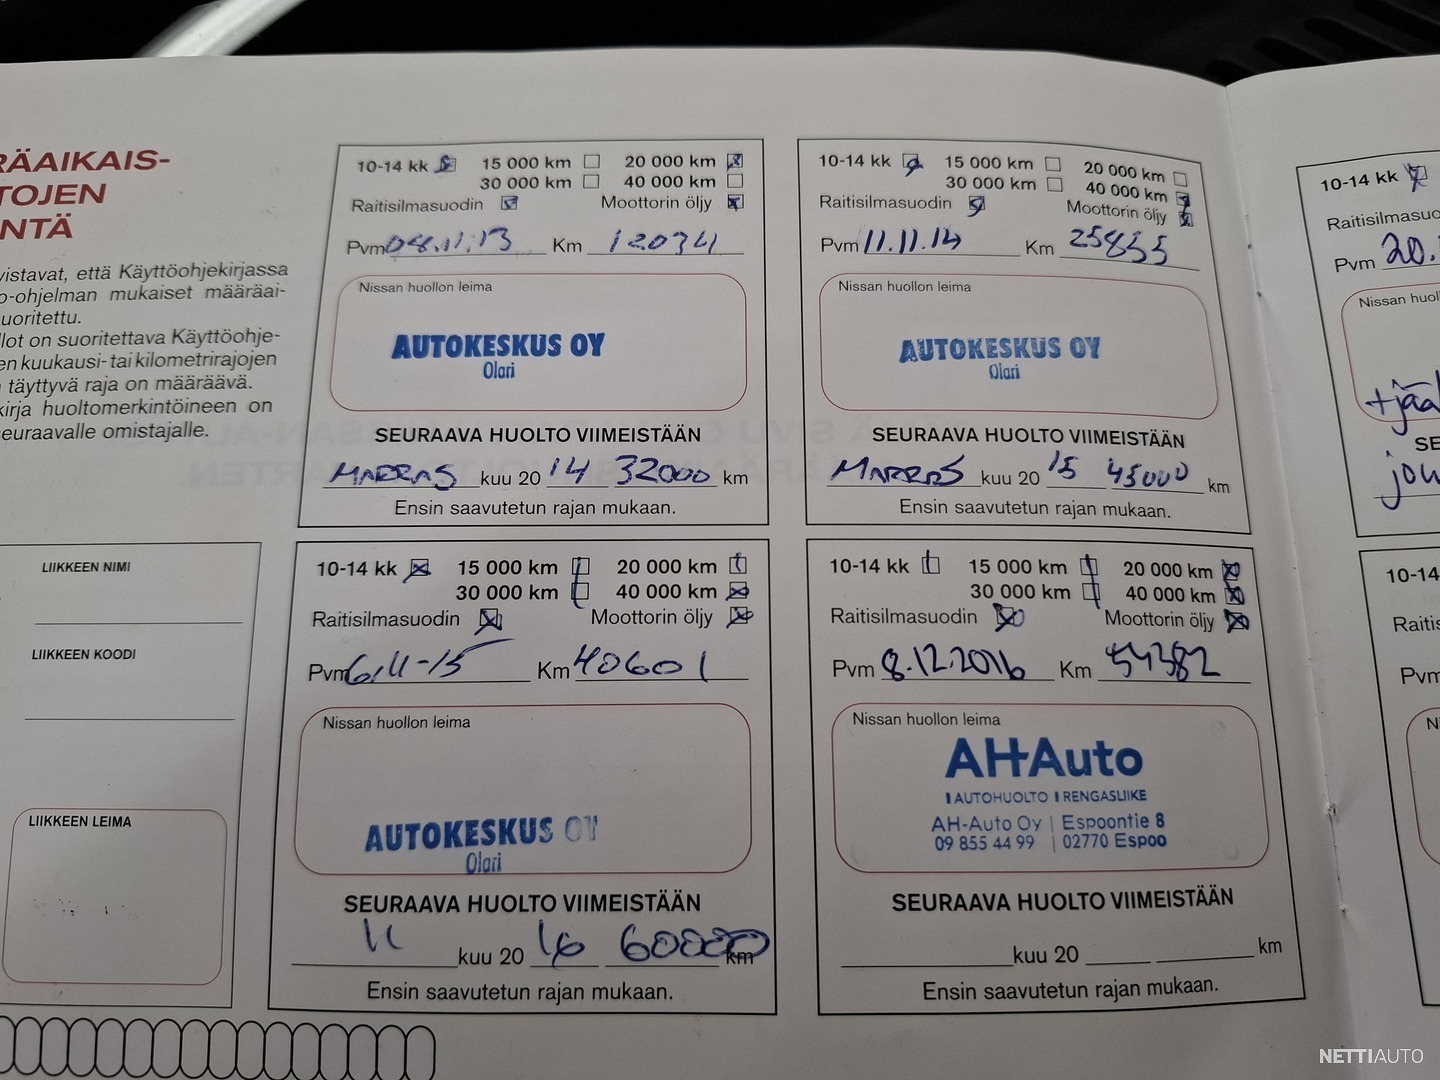 RÄAIKAIS-
TOJEN
NTÄ
vistavat, että Käyttöohjekirjassa
o-ohjelman mukaiset määräai-
uoritettu.
llot on suoritettava Käyttöohje-
en kuukausi- tai kilometrirajojen
täyttyvä raja on määräävä.
kirja huoltomerkintöineen on
seuraavalle omistajalle.
LIIKKEEN NIMI
LIIKKEEN KOODI
LIIKKEEN LEIMA
10-14 kk 15 000 km 20 000 km
30 000 km 40 000 km
Raitisilmasuodin Moottorin öljy
Pvm 04.11.13 Km 12034
Nissan huollon leima
AUTOKESKUS OY
Olari
SEURAAVA HUOLTO VIIMEISTÄÄN
MARRAS kuu 20 14 32000 km
Ensin saavutetun rajan mukaan.
10-14 kk 15 000 km 20 000 km
30 000 km 40 000 km
Raitisilmasuodin Moottorin öljy
Pvm 11.11.14 Km 25855
Nissan huollon leima
AUTOKESKUS OY
Olari
SEURAAVA HUOLTO VIIMEISTÄÄN
MARRAS kuu 20 15 45000 km
Ensin saavutetun rajan mukaan.
10-14 kk 15 000 km 20 000 km
30 000 km 40 000 km
Raitisilmasuodin Moottorin öljy
Pvm 6.11-15 Km 40601
Nissan huollon leima
AUTOKESKUS OY
Olari
SEURAAVA HUOLTO VIIMEISTÄÄN
11 kuu 20 16 60000 km
Ensin saavutetun rajan mukaan.
10-14 kk 15 000 km 20 000 km
30 000 km 40 000 km
Raitisilmasuodin Moottorin öljy
Pvm 8.12.2016 Km 54382
Nissan huollon leima
AHAuto
AUTOHUOLTO RENGASLIIKE
AH-Auto Oy | Espoontie 8
09 855 44 99 | 02770 Espoo
SEURAAVA HUOLTO VIIMEISTÄÄN
kuu 20 km
Ensin saavutetun rajan mukaan.
10-14 kk
Raitisilmasuo
Pvm 20.
Nissan huol
+jää
SE
jou
10-14
Raitis
Pvm
N
NETTIAUTO